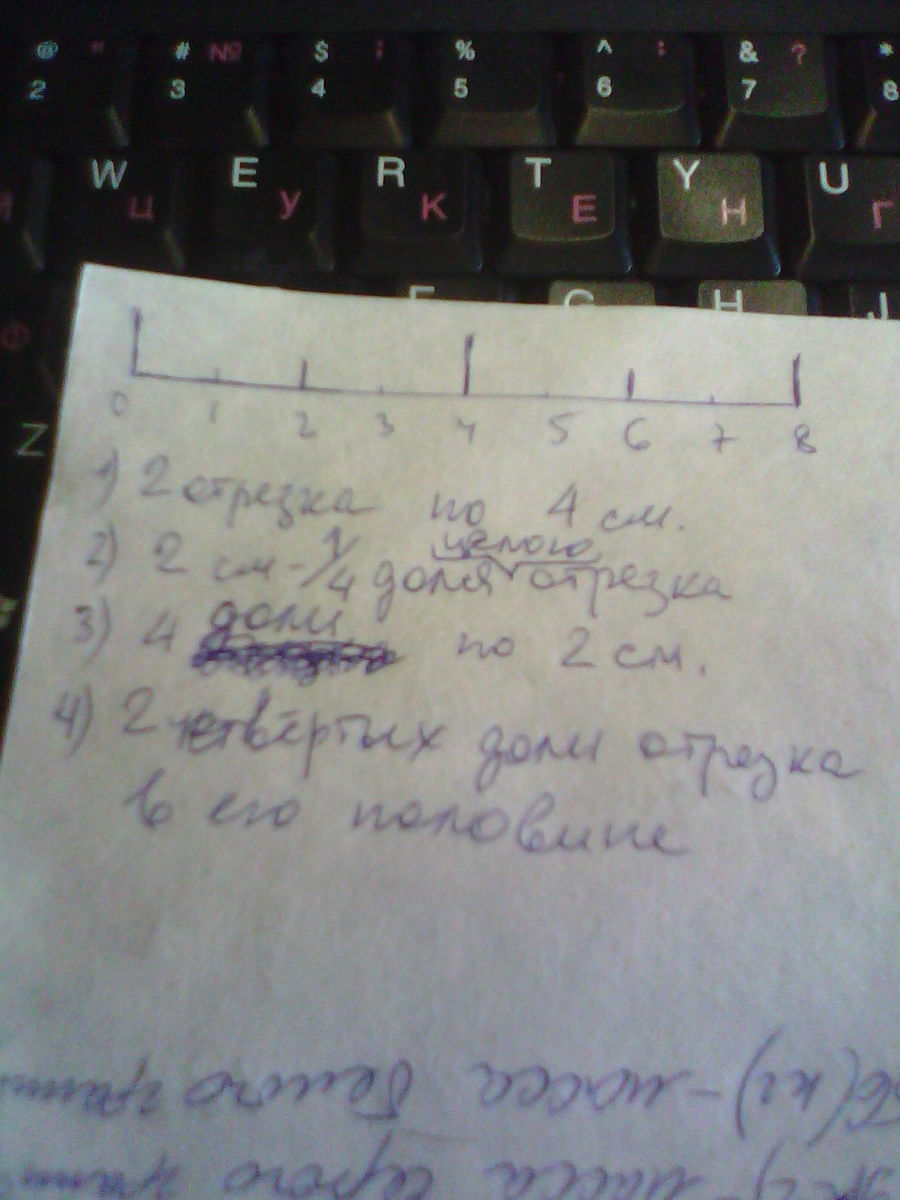 @ " # № $ ; % ^ : & ? *
2 3 4 5 6 7 8
W Ц E У R К T Е Y Н U Г
Ф F G H J
Z
0 1 2 3 4 5 6 7 8
1) 2 отрезка по 4 см.
целого
2) 2 см - 1/4 доля отрезка
доли
3) 4 по 2 см.
4) 2 четвёртых доли отрезка
в его половине
6(кг) - масса белого
масса серого